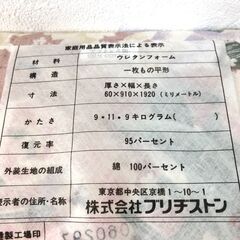 家庭用品品質表示法による表示
材料 ウレタンフォーム
構造 一枚もの平形
寸法 厚さ×幅×長さ
60×910×1920(ミリメートル)
かたさ 9・11・9キログラム(
復元率 95パーセント
外装生地の組成 綿 100パーセント
表示者の住所・名称 東京都中央区京橋1〜10〜1
株式会社ブリヂストン
縫製工場印